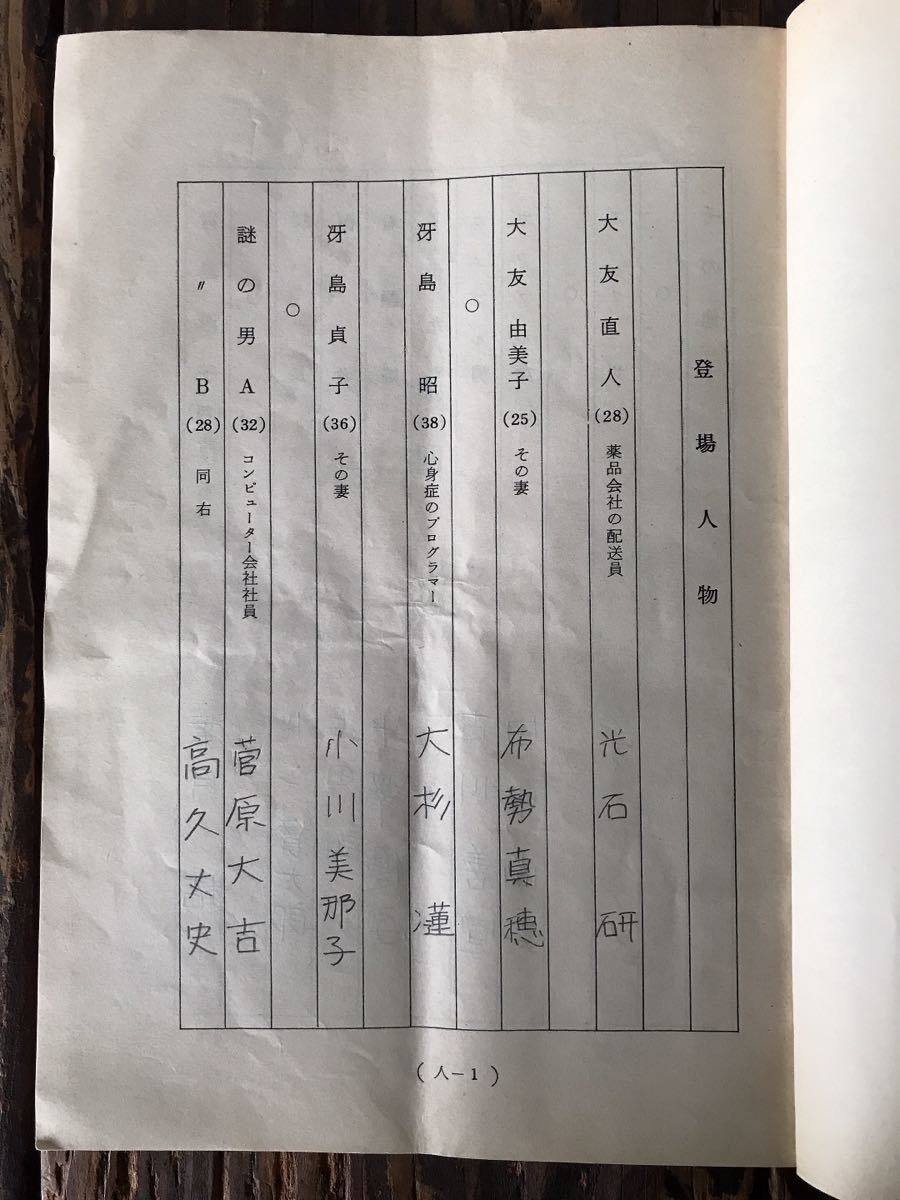 登場人物
大友直人(28) 薬品会社の配送員 光石研
大友由美子(25) その妻 布勢真穂
○
冴島 昭(38) 心身症のプログラマー 大杉 漣
冴島貞子(36) その妻 小川美那子
○
謎の男A(32) コンピューター会社社員 菅原大吉
〃 B(28) 同右 高久丈史
(人-1)